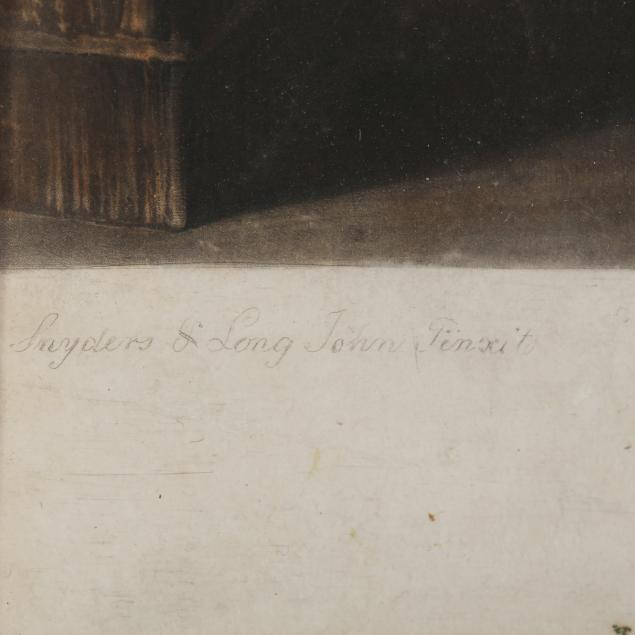 Snyders & Long John Pinxit